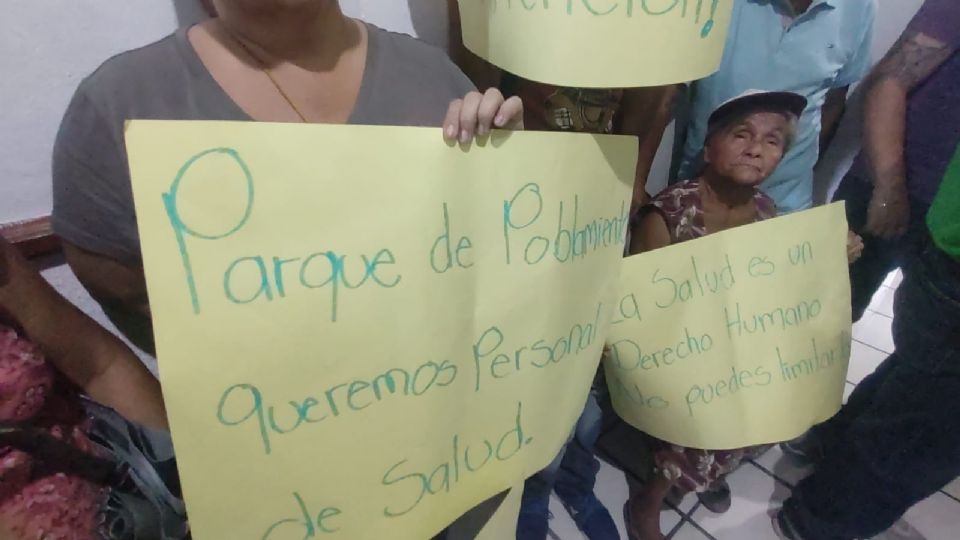 Parque de Poblamiento
queremos Personal
de Salud.
La Salud es un
Derecho Humano
No puedes limitar